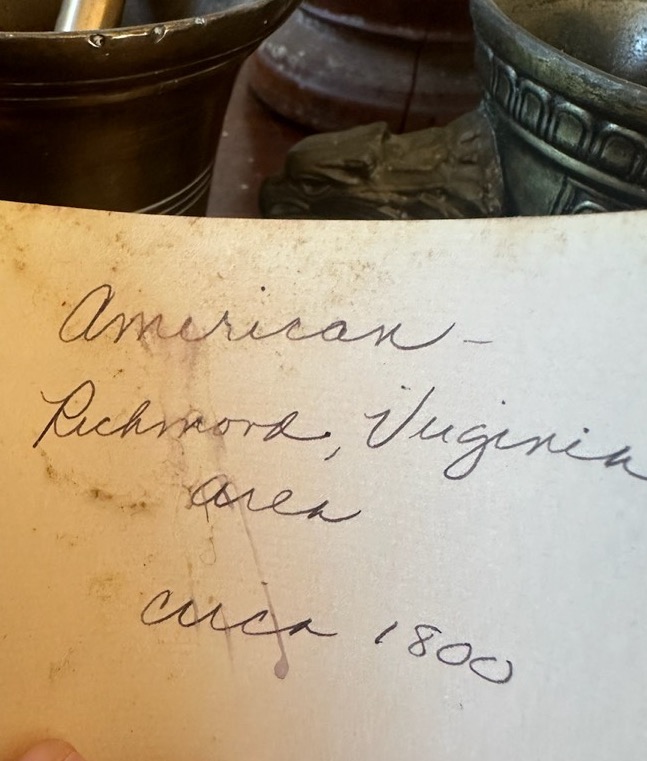 American -
Richmond, Virginia
area
circa 1800